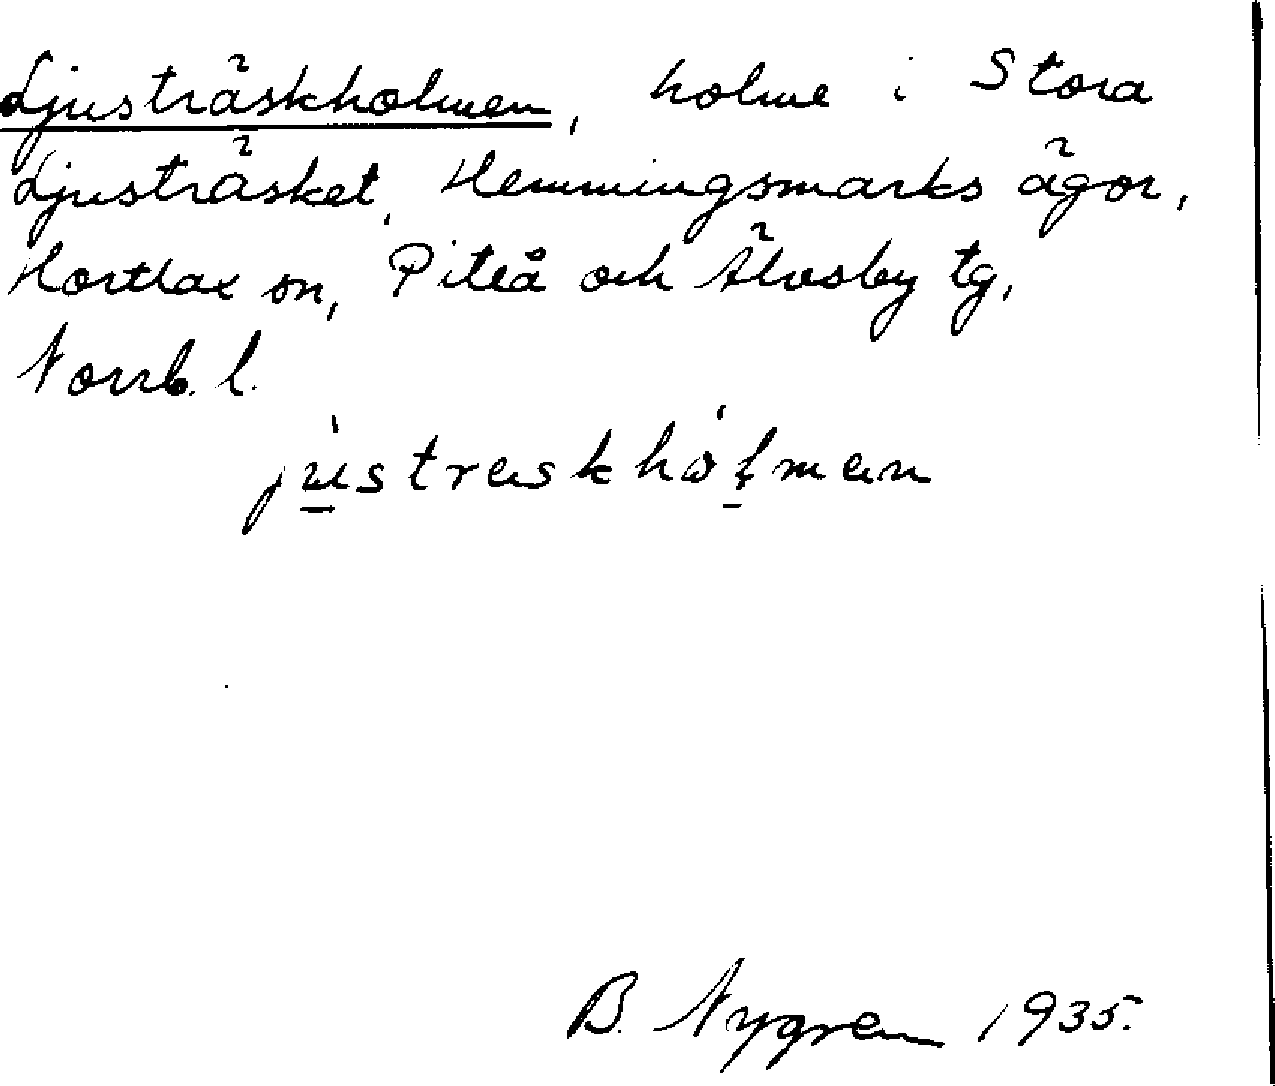 Ljusträskholmen, holme i Stora
Ljusträsket, Hemmingsmarks ägor,
Hortlax sn, Piteå och Älvsby tg,
Norrb. l.
B. Nygren 1935.